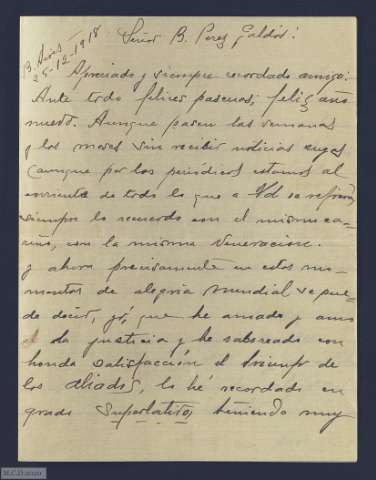 B. Aires
25-12-1918
Señor B. Perez Galdós:
Apreciado y siempre recordado amigo:
Ante todo felices pascuas; feliz año
nuevo. Aunque pasen las semanas
y los meses sin recibir noticias suyas
(aunque por los periódicos estamos al
corriente de todo lo que a Vd se refiere)
siempre lo recuerdo con el mismo ca-
riño, con la misma veneracion.
y ahora precisamente en estos mo-
mentos de alegria mundial se pue-
de decir, yó, que he amado y amo
a la justicia y he saboreado con
honda satisfacción el triunfo de
los aliados, lo hé recordado en
grado superlativo, teniendo muy
M.C.D. 2020